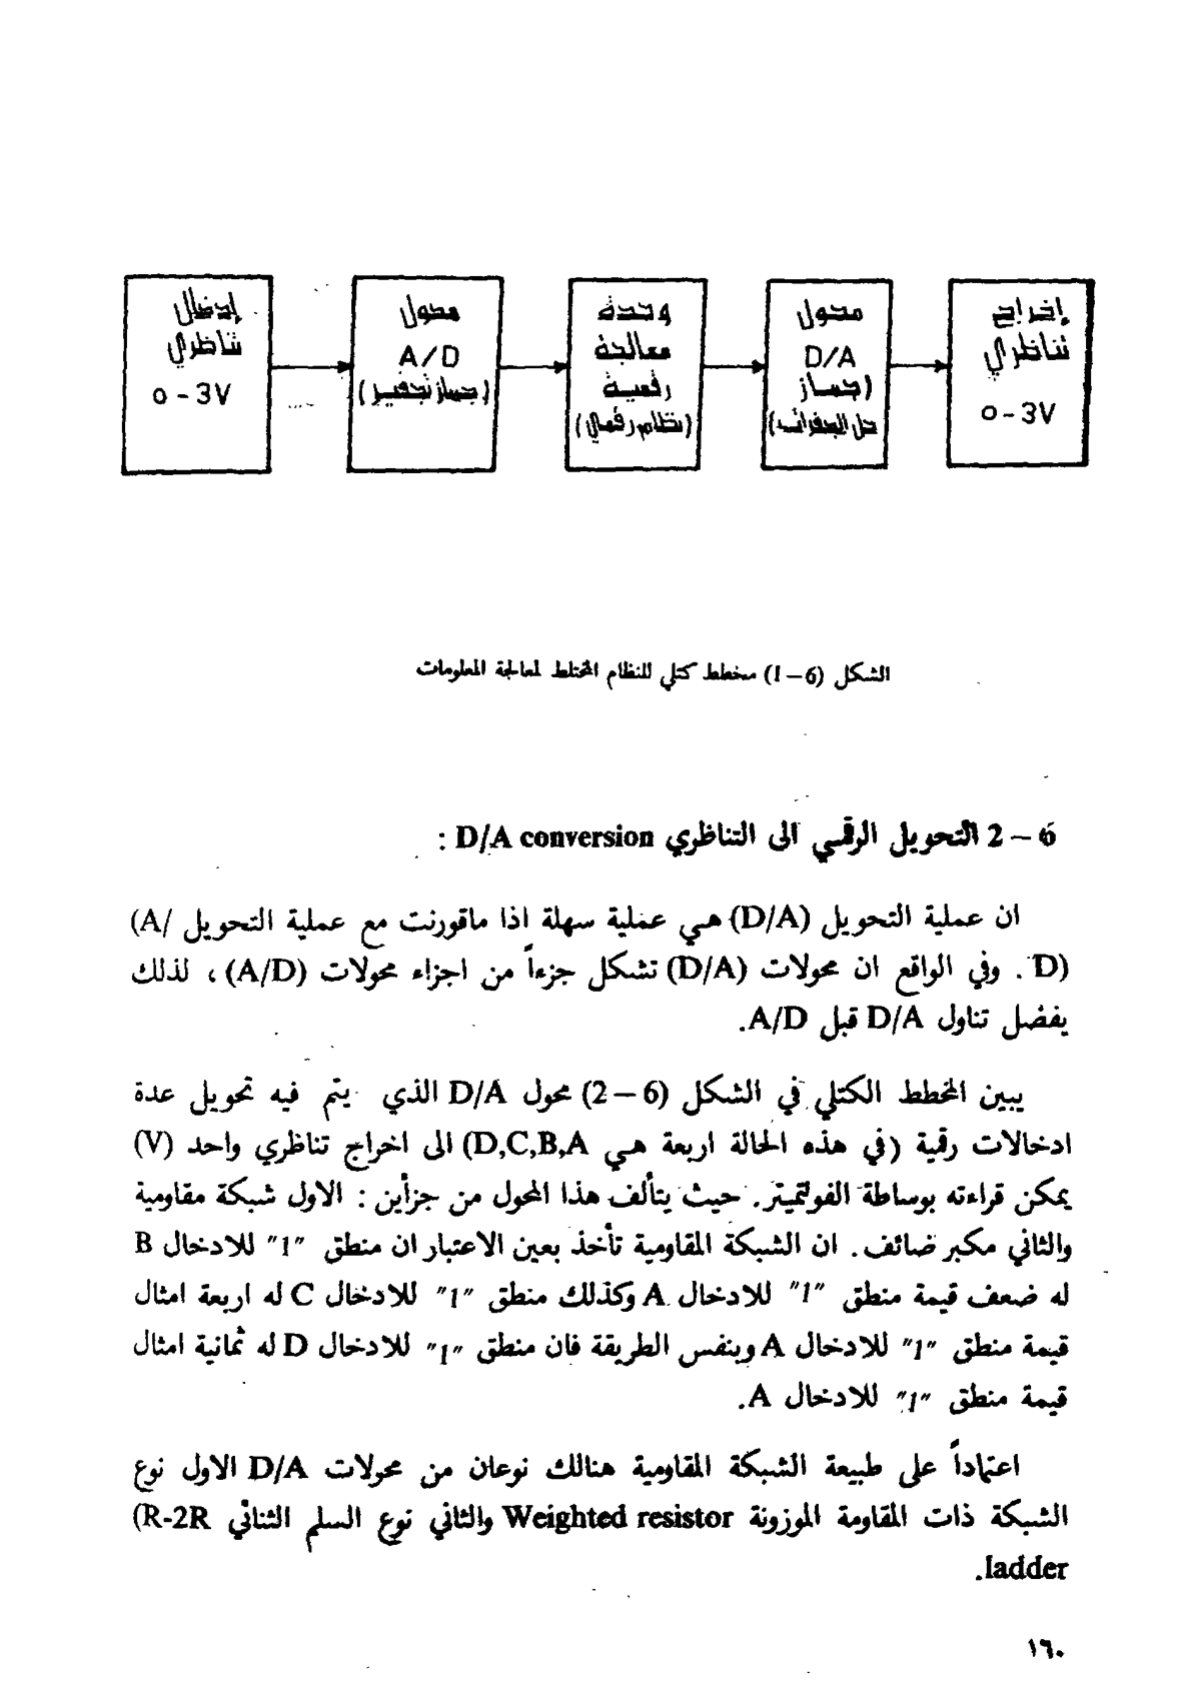 إدخال
تناظري
0 - 3V
محول
A/D
(جهاز تحفير)
وحدة
معالجة
رقمية
(نظام رقمي)
محول
D/A
(جهاز
حل الجفرات)
إخراج
تناظري
0 - 3V
الشكل (6 – 1) مخطط كتلي للنظام المختلط لمعالجة المعلومات
6 – 2 التحويل الرقمي الى التناظري D/A conversion :
ان عملية التحويل (D/A) هي عملية سهلة اذا ماقورنت مع عملية التحويل (A/
D) . وفي الواقع ان محولات (D/A) تشكل جزءاً من اجزاء محولات (A/D) ، لذلك
يفضل تناول D/A قبل A/D.
يبين المخطط الكتلي في الشكل (6 – 2) محول D/A الذي يتم فيه تحويل عدة
ادخالات رقمية (في هذه الحالة اربعة هي D,C,B,A) الى اخراج تناظري واحد (V)
يمكن قراءته بوساطة الفولتميتر. حيث يتألف هذا المحول من جزأين : الاول شبكة مقاومية
والثاني مكبر ضائف . ان الشبكة المقاومية تأخذ بعين الاعتبار ان منطق "1" للادخال B
له ضعف قيمة منطق "1" للادخال A وكذلك منطق "1" للادخال C له اربعة امثال
قيمة منطق "1" للادخال A وبنفس الطريقة فان منطق "1" للادخال D له ثمانية امثال
قيمة منطق "1" للادخال A.
اعتماداً على طبيعة الشبكة المقاومية هنالك نوعان من محولات D/A الاول نوع
الشبكة ذات المقاومة الموزونة Weighted resistor والثاني نوع السلم الثنائي (R-2R
ladder.
١٦٠